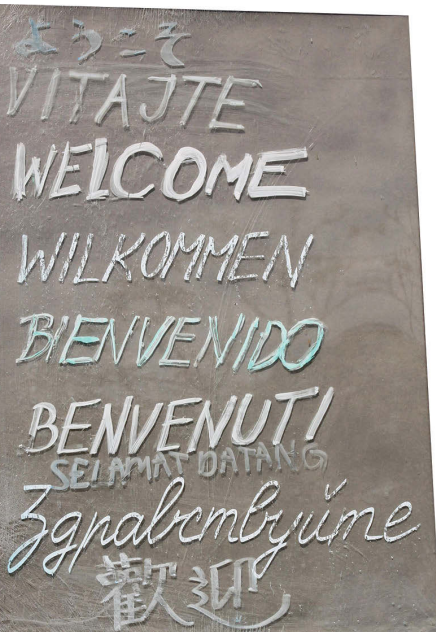 ようこそ
VITAJTE
WELCOME
WILKOMMEN
BIENVENIDO
BENVENUTI
SELAMAT DATANG
Здравствуйте
歡迎